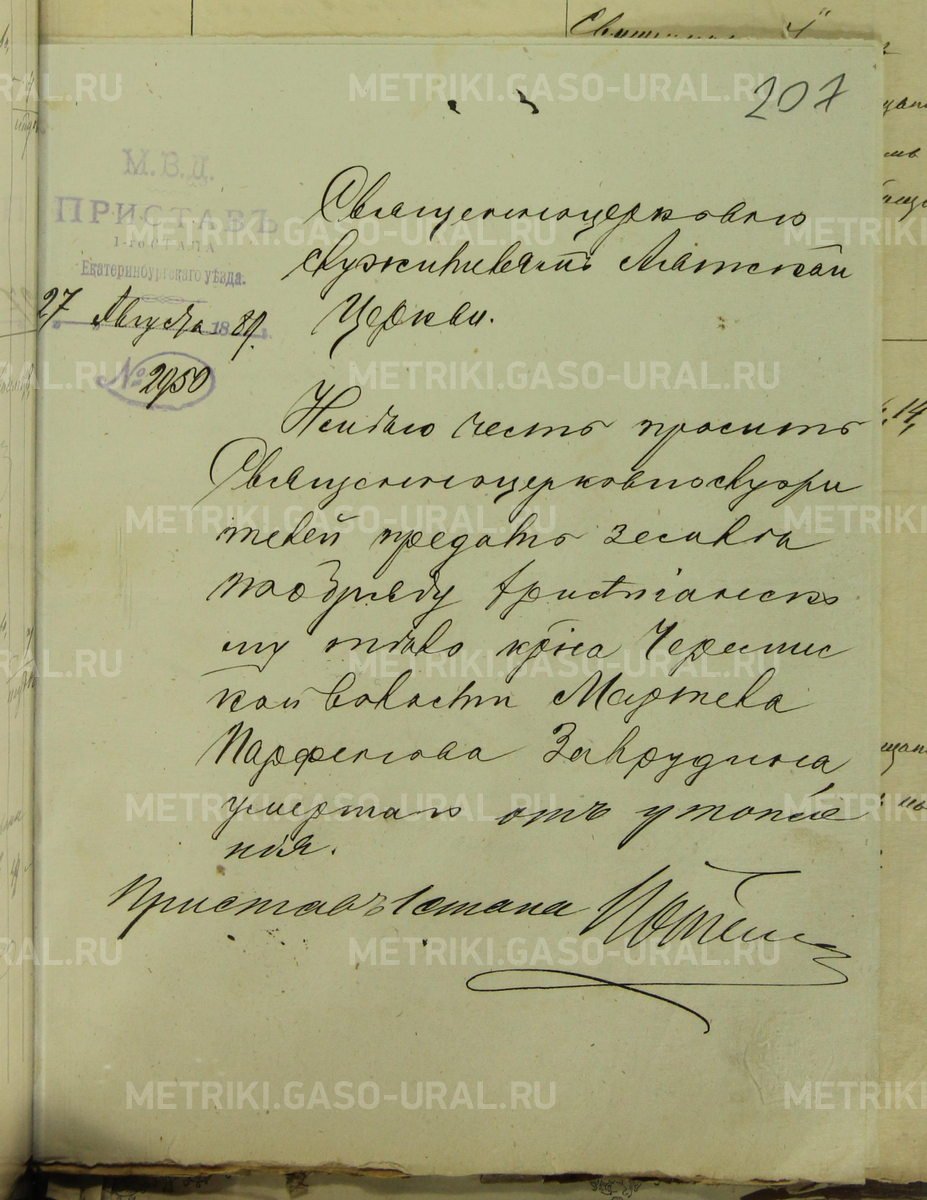 207
М. В. Д.
ПРИСТАВЪ
1-го СТАНА
Екатеринбургскаго уѣзда.
27 Августа 1889.
№ 2950
Священноцерковно
служителямъ Аятской
Церкви.
Имѣю честь просить
Священноцерковнослужи
телей предать земле
по обряду христианско
му тѣло кр-на Черемис
ской волости Матвея
Парфенова
умершаго отъ утопле
нія.
Приставъ 1 стана
METRIKI.GASO-URAL.RU